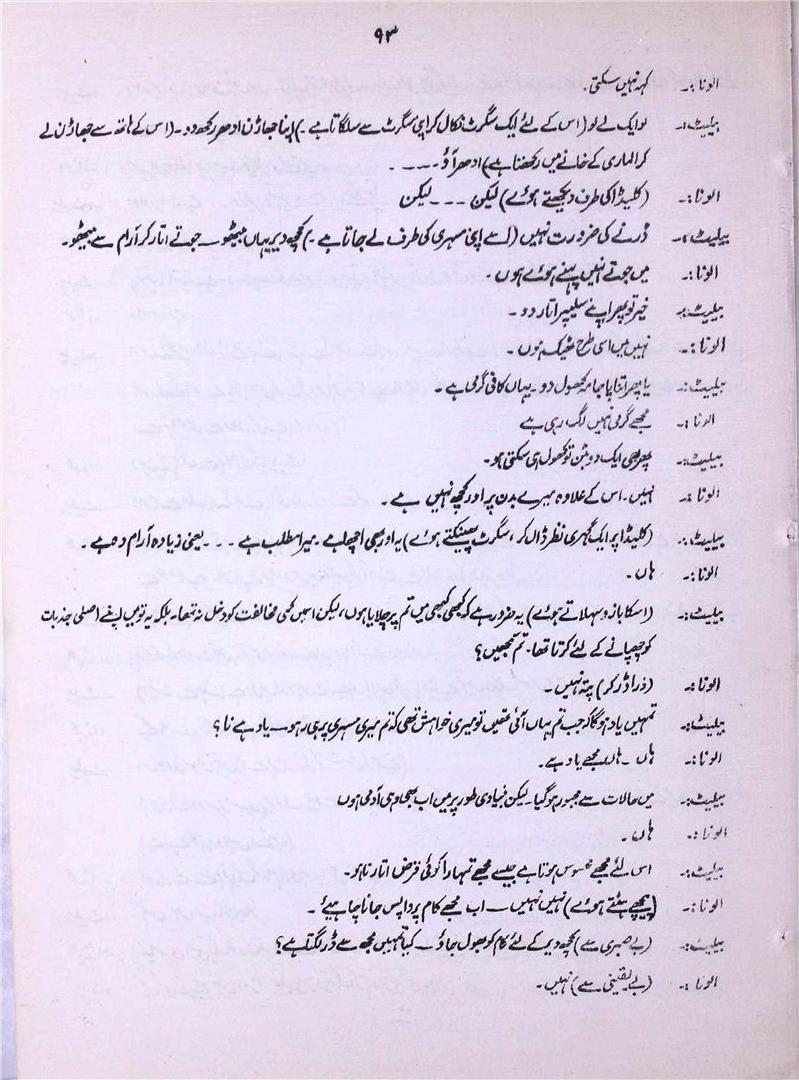 ۹۳
الونا:۔ کہہ نہیں سکتی۔
بیلیٹ:۔ لو ایک لے لو (اس کے لئے ایک سگرٹ نکال کر اپنی سگرٹ سے سلگاتا ہے۔) اپنا جھاڑن ادھر رکھدو۔ (اس کے ہاتھ سے جھاڑن لے
کر الماری کے خانے میں رکھتا ہے) ادھر آؤ ۔۔۔۔
الونا:۔ (کلیڈا کی طرف دیکھتے ہوئے) لیکن ۔۔۔ لیکن
بیلیٹ:۔ ڈرنے کی ضرورت نہیں (اسے اپنی مسہری کی طرف لے جاتا ہے۔) کچھ دیر یہاں بیٹھو ۔ جوتے اتار کر آرام سے بیٹھو۔
الونا:۔ میں جوتے نہیں پہنے ہوئے ہوں۔
بیلیٹ:۔ خیر تو پھر اپنے سلیپر اتار دو۔
الونا:۔ نہیں میں اسی طرح ٹھیک ہوں۔
بیلیٹ:۔ یا پھر اپنا پاجامہ کھول دو۔ یہاں کافی گرمی ہے۔
الونا:۔ مجھے گرمی نہیں لگ رہی ہے
بیلیٹ:۔ پھر بھی ایک دو بٹن تو کھول ہی سکتی ہو۔
الونا:۔ نہیں۔ اس کے علاوہ میرے بدن پر اور کچھ نہیں ہے۔
بیلیٹ:۔ (کلیڈا پر ایک گہری نظر ڈال کر، سگرٹ پھینکتے ہوئے) یہ اور بھی اچھا ہے۔ میرا مطلب ہے ۔۔۔ یعنی زیادہ آرام دہ ہے۔
الونا:۔ ہاں۔
بیلیٹ:۔ (اسکا بازو سہلاتے ہوئے) یہ ضرور ہے کہ کبھی کبھی میں تم پر چلایا ہوں، لیکن اسمیں کسی مخالفت کو دخل نہ تھا۔ بلکہ یہ تو میں اپنے اصلی جذبات
کو چھپانے کے لئے کرتا تھا۔ تم سمجھیں؟
الونا:۔ (ذرا ڈر کر) پتہ نہیں۔
بیلیٹ:۔ تمہیں یاد ہو گا کہ جب تم یہاں آئی تھیں تو میری خواہش تھی کہ تم میری مسہری پر ہی رہو۔ یاد ہے نا؟
الونا:۔ ہاں ۔ ہاں مجھے یاد ہے۔
بیلیٹ:۔ میں حالات سے مجبور ہو گیا۔ لیکن بنیادی طور پر میں اب بھی وہی آدمی ہوں
الونا:۔ ہاں۔
بیلیٹ:۔ اس لئے مجھے محسوس ہوتا ہے جیسے مجھے تمہارا کوئی قرض اتارنا ہو۔
الونا:۔ (پیچھے ہٹتے ہوئے) نہیں نہیں ۔ اب مجھے کام پر واپس جانا چاہیئے۔
بیلیٹ:۔ (بے صبری سے) کچھ دیر کے لئے کام کو بھول جاؤ ۔ کیا تمہیں مجھ سے ڈر لگتا ہے؟
الونا:۔ (بے یقینی سے) نہیں۔